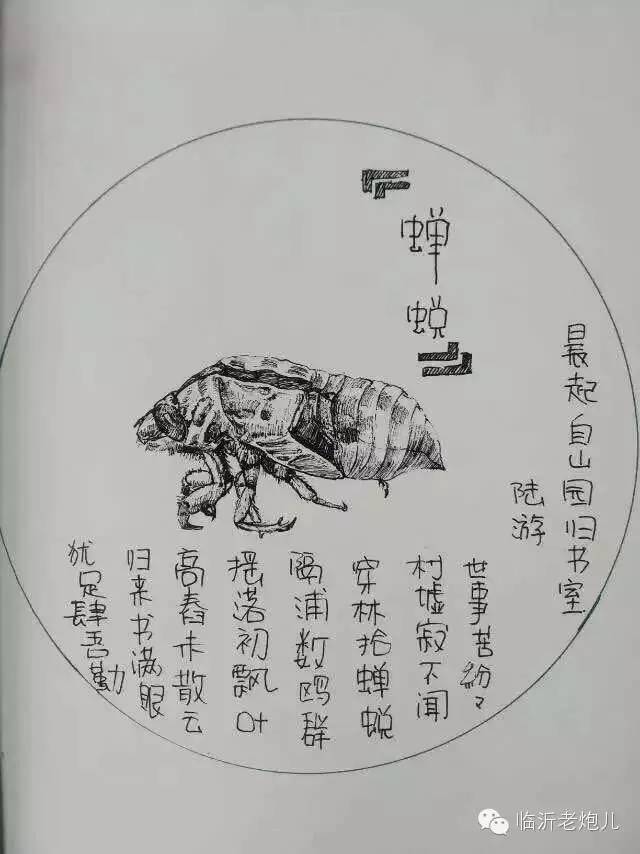 『蝉蜕』
晨起自山园归书室
陆游
世事苦纷々
村墟寂不闻
穿林拾蝉蜕
隔浦数鸥群
摇落初飘叶
高舂未散云
归来书满眼
犹足肆吾勤
临沂老炮儿